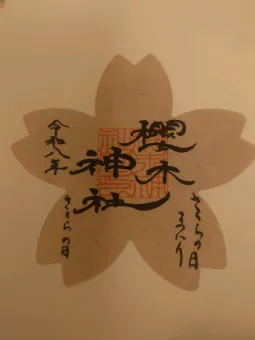 さくらの日
まいり
櫻木
神社
令和八年
さくらの日